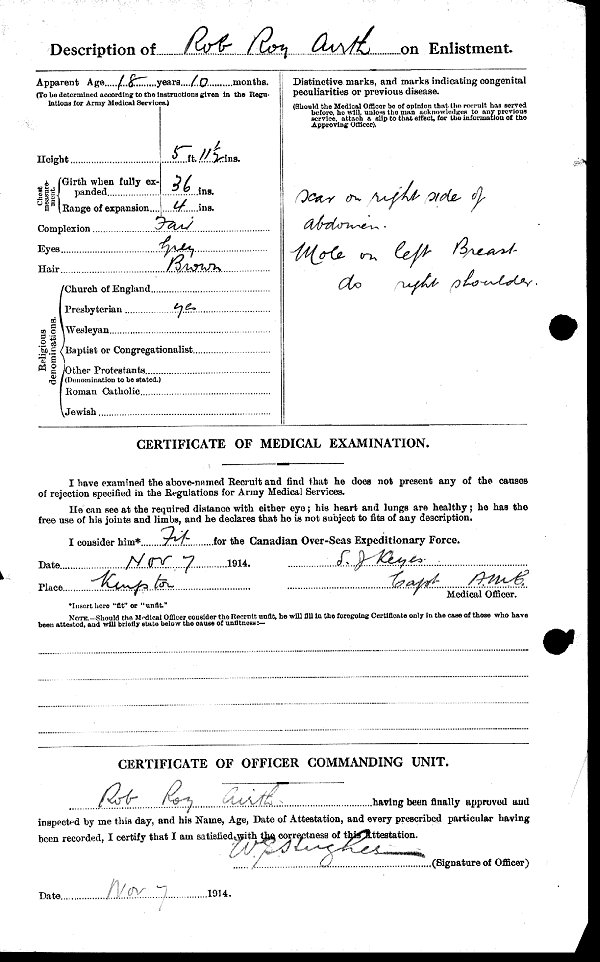 Description of Rob Roy Airth on Enlistment.
Apparent Age 18 years 10 months.
(To be determined according to the instructions given in the Regu-
lations for Army Medical Services.)
Height 5 ft. 11½ ins.
Chest measure-ment.
Girth when fully ex-
panded 36 ins.
Range of expansion 4 ins.
Complexion Fair
Eyes Grey
Hair Brown
Religious denominations.
Church of England
Presbyterian yes
Wesleyan
Baptist or Congregationalist
Other Protestants
(Denomination to be stated.)
Roman Catholic
Jewish
Distinctive marks, and marks indicating congenital
peculiarities or previous disease.
(Should the Medical Officer be of opinion that the recruit has served
before, he will, unless the man acknowledges to any previous
service, attach a slip to that effect, for the information of the
Approving Officer).
Scar on right side of
abdomen.
Mole on left Breast
do right shoulder.
CERTIFICATE OF MEDICAL EXAMINATION.
I have examined the above-named Recruit and find that he does not present any of the causes
of rejection specified in the Regulations for Army Medical Services.
He can see at the required distance with either eye; his heart and lungs are healthy; he has the
free use of his joints and limbs, and he declares that he is not subject to fits of any description.
I consider him* Fit for the Canadian Over-Seas Expeditionary Force.
Date Nov 7 1914. S. J Keyes
Place Kingston Capt A.M.C.
Medical Officer.
*Insert here "fit" or "unfit."
NOTE.—Should the Medical Officer consider the Recruit unfit, he will fill in the foregoing Certificate only in the case of those who have
been attested, and will briefly state below the cause of unfitness:—
CERTIFICATE OF OFFICER COMMANDING UNIT.
Rob Roy Airth having been finally approved and
inspected by me this day, and his Name, Age, Date of Attestation, and every prescribed particular having
been recorded, I certify that I am satisfied with the correctness of this Attestation.
Hughes (Signature of Officer)
Date Nov 7 1914.